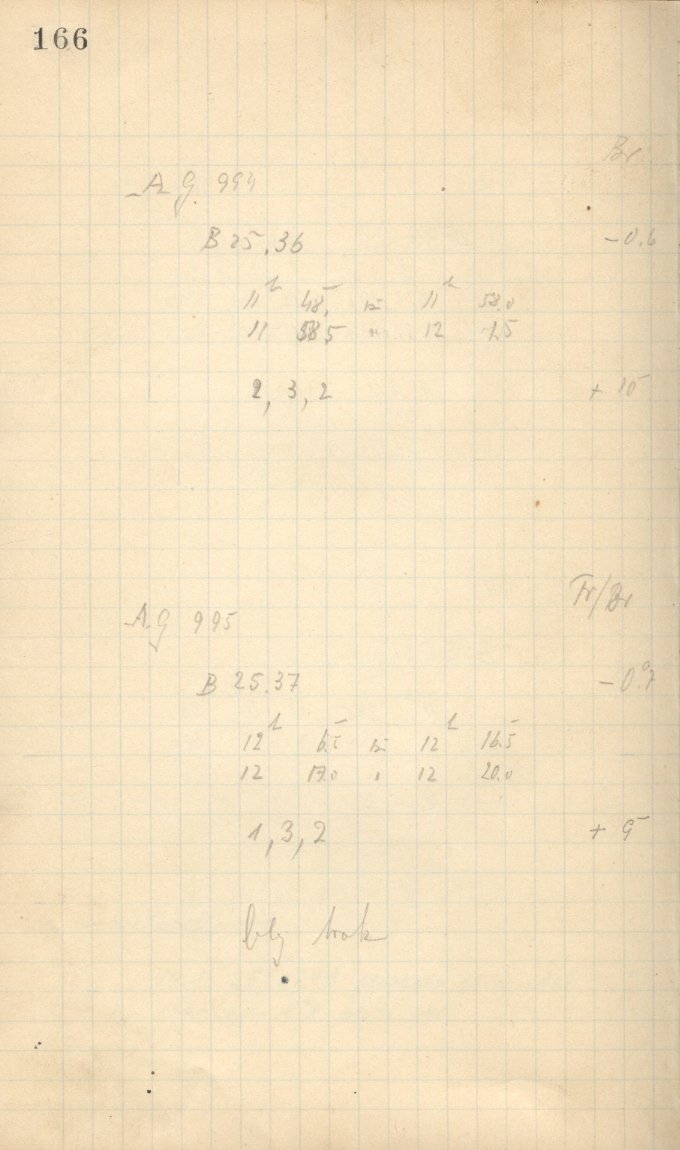 166
Br
AG 994
B 25.36 -0.6
11h 48. bis 11h 58.0
11 58.5 " 12 1.5
2, 3, 2 + 10
Fr/Br
AG 995
B 25.37 -0.7
12h 6.5 bis 12h 16.5
12 17.0 " 12 20.0
1, 3, 2 + 9